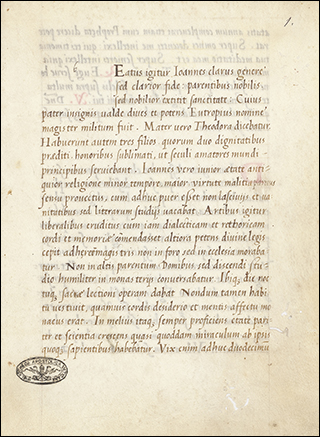 1.
Eatus igitur Ioannes clarus genere
sed clarior fide: parentibus nobilis,
sed nobilior extitit sanctitate: Cuius
pater insignis ualde diues et potens Eutropius nomine
magister militum fuit. Mater uero Theodora dicebatur
Habuerunt autem tres filios, quorum duo dignitatibus
præditi, honoribus sublimati, ut seculi amatores mundi
principibus seruiebant. Ioannes uero iunior ætate anti-
quior religione minor tempore, maior uirtute
sensu prouectus, cum adhuc puer esset non lasciuis, et ua
nitatibus sed literarum studijs uacabat. Artibus igitur
liberalibus eruditus cum iam dialecticam et rethoricam
cordi et memoriæ comendasset altiora petens diuine legis
cepit adherere magistris non in foro sed in ecclesia moraba
tur. Non in altis parentum domibus sed discendi stu-
dio humiliter in monasterijs conuersabatur. Ibiq, die noc
tuq, sacræ lectioni operam dabat Nondum tamen habi
tu uestiuit, quamuis cordis desiderio et mentis affectu mo
nacus erat. In melius itaq, semper proficiens etate pari
ter et scientia crescens quasi quoddam miraculum ab ipsis
quoq, sapientibus habebatur. Vix enim adhuc duodecimu